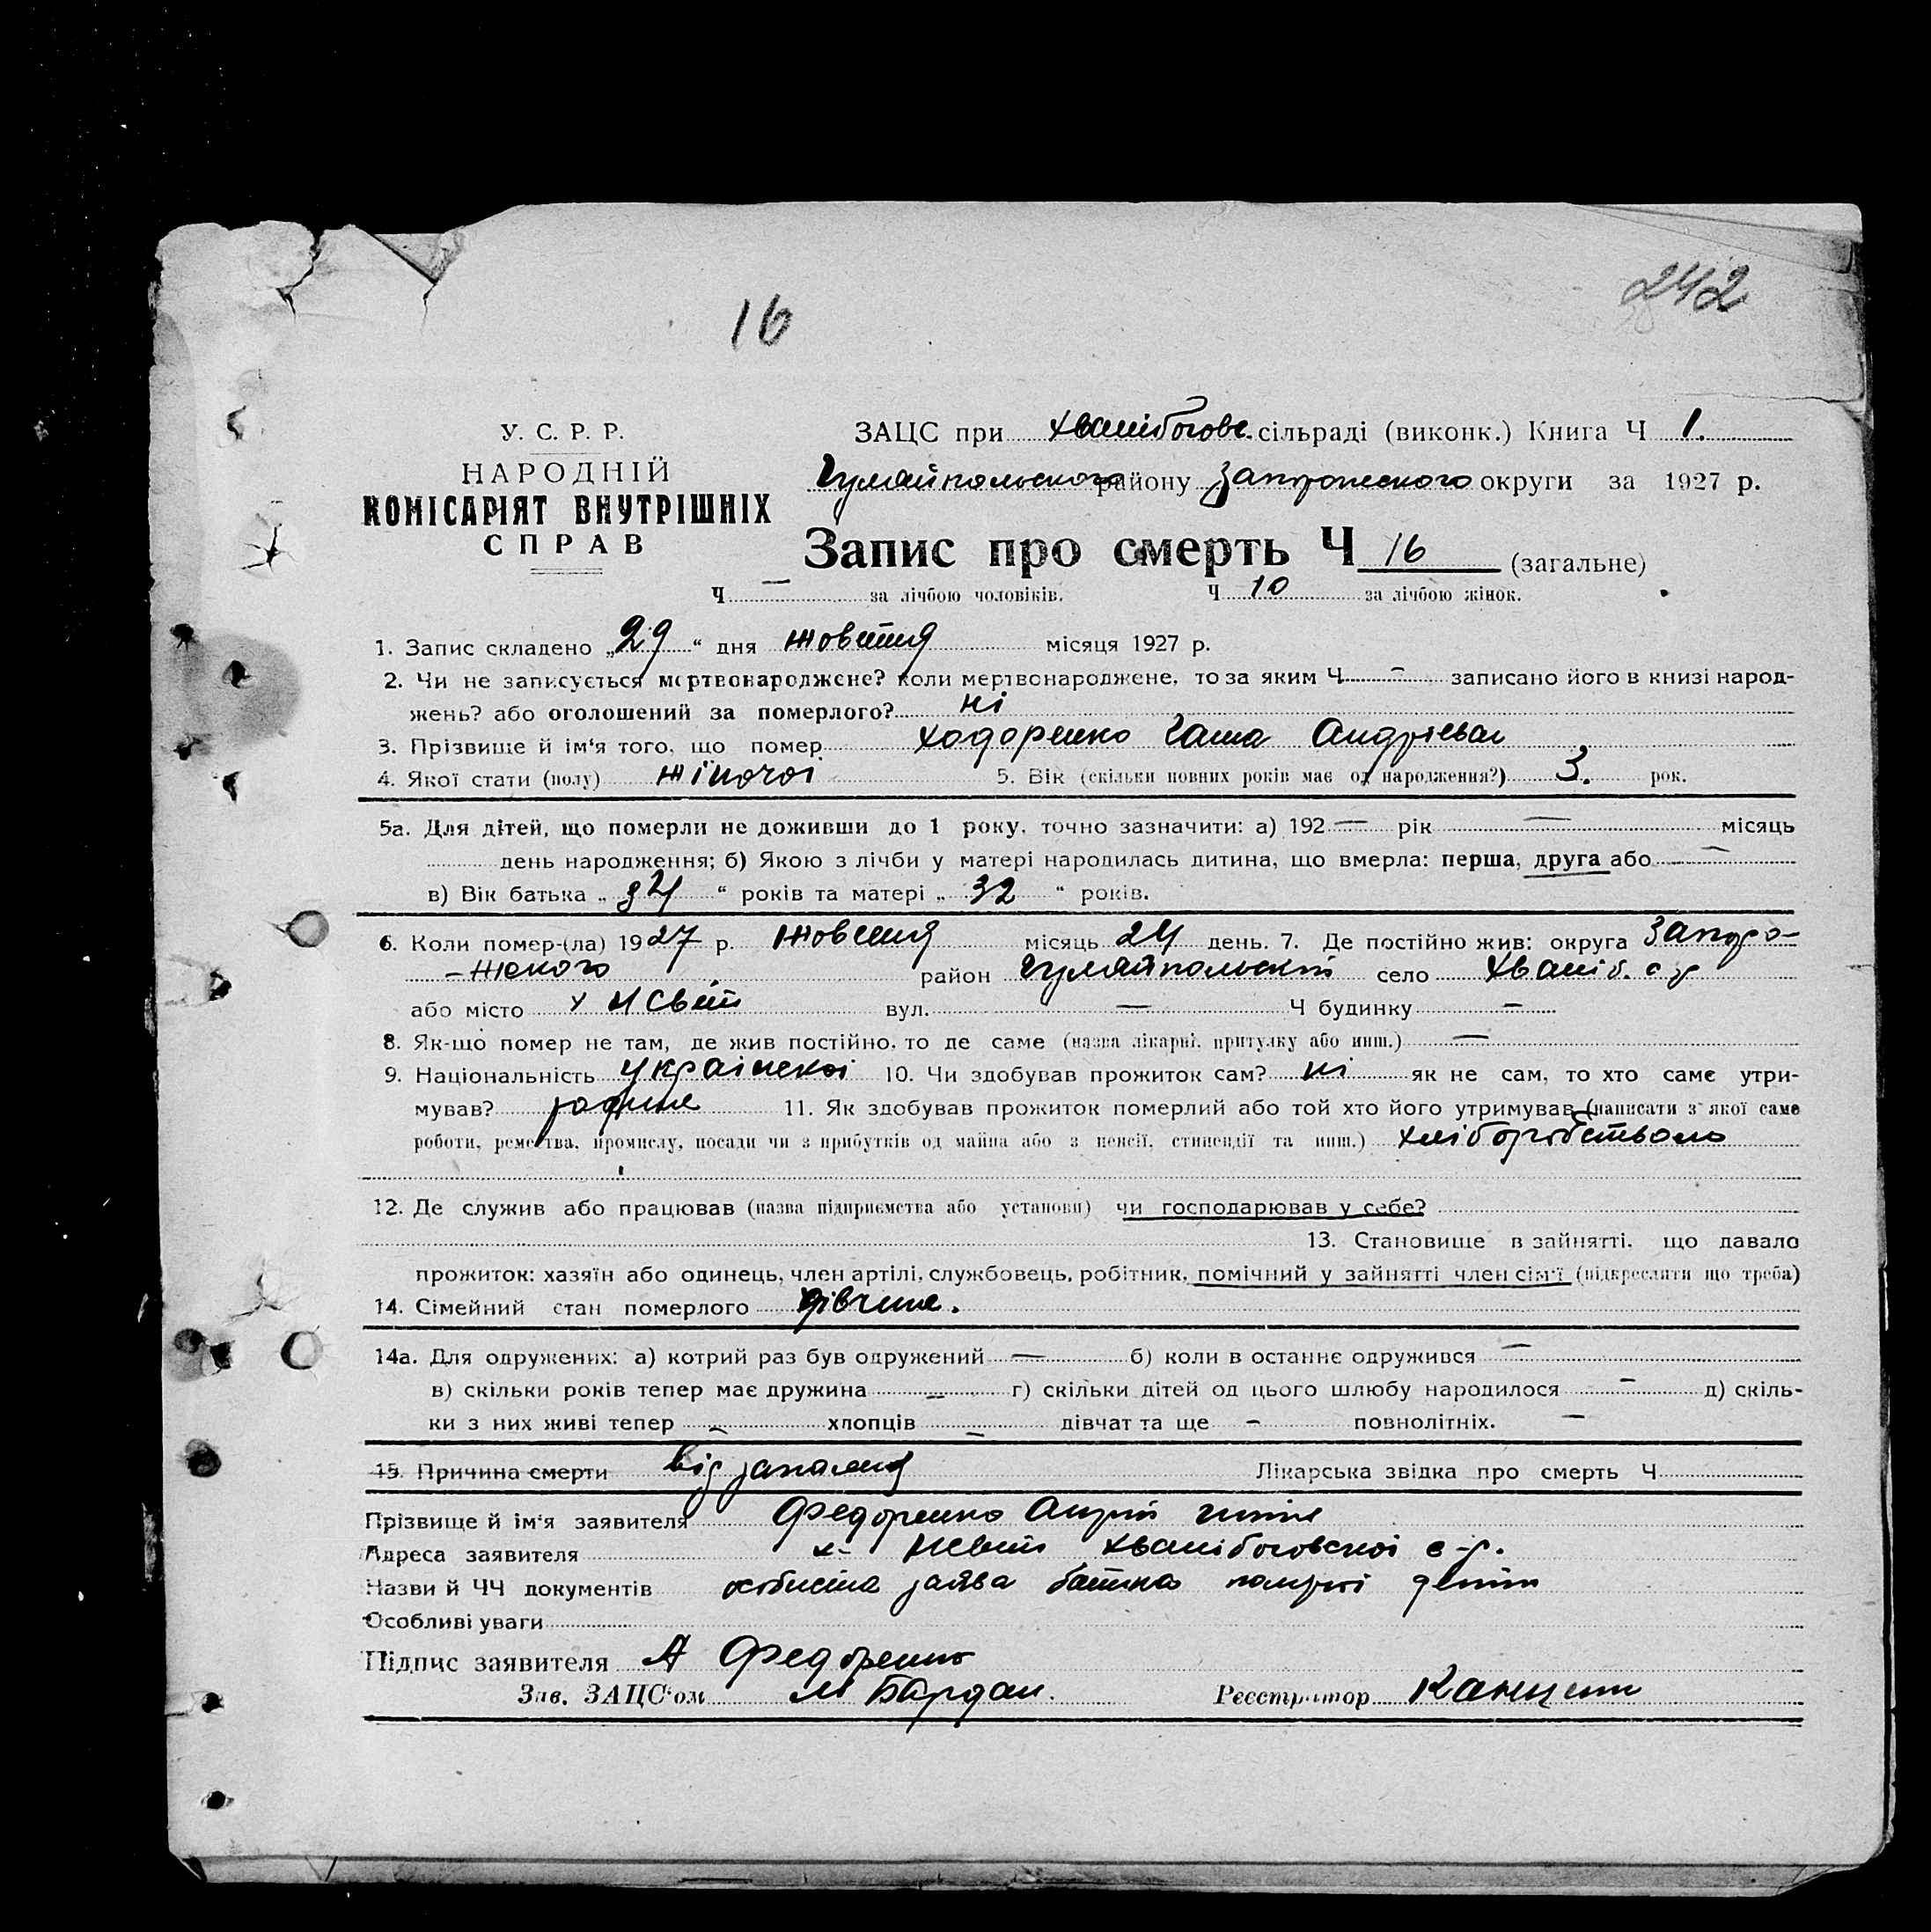 242
16
У. С. Р. Р.
НАРОДНІЙ
КОМІСАРІЯТ ВНУТРІШНІХ
СПРАВ
ЗАЦС при сільраді (виконк.) Книга Ч 1.
Гуляйпольского району Запорожского округи за 1927 р.
Запис про смерть Ч 16 (загальне)
Ч — за лічбою чоловіків. Ч 10 за лічбою жінок.
1. Запис складено „29“ дня жовтня місяця 1927 р.
2. Чи не записується мертвонароджене? коли мертвонароджене, то за яким Ч — записано його в книзі народ-
жень? або оголошений за померлого? ні
3. Прізвище й ім'я того, що помер Ходоренко Андрієва
4. Якої стати (полу) жіночої 5. Вік (скільки повних років має од народження?) 3. рок.
5а. Для дітей, що померли не доживши до 1 року, точно зазначити: а) 192 — рік — місяць
день народження; б) Якою з лічби у матері народилась дитина, що вмерла: перша, друга або —
в) Вік батька „ 34 “ років та матері „ 32 “ років.
6. Коли помер-(ла) 1927 р. жовтня місяць 24 день. 7. Де постійно жив: округа Запоро-
-жского район Гуляйпольский село
або місто вул. — Ч будинку —
8. Як-що помер не там, де жив постійно, то де саме (назва лікарні, притулку або инш.) —
9. Національність української 10. Чи здобував прожиток сам? ні як не сам, то хто саме утри-
мував? 11. Як здобував прожиток померлий або той хто його утримував (написати з якої саме
роботи, ремества, промислу, посади чи з прибутків од майна або з пенсії, стипендії та инш.) хліборобством
12. Де служив або працював (назва підприємства або установи) чи господарював у себе?
13. Становище в зайнятті, що давало
прожиток: хазяїн або одинець, член артілі, службовець, робітник, помічний у зайнятті член сім'ї (підкреслити що треба)
14. Сімейний стан померлого дівчина.
14а. Для одружених: а) котрий раз був одружений — б) коли в останнє одружився —
в) скільки років тепер має дружина — г) скільки дітей од цього шлюбу народилося — д) скіль-
ки з них живі тепер — хлопців — дівчат та ще — повнолітніх. —
15. Причина смерти від запалення Лікарська звідка про смерть Ч
Прізвище й ім'я заявителя Федоренко Андрій
Адреса заявителя с-р.
Назви й ЧЧ документів особиста заява батька
Особливі уваги
Підпис заявителя А Федоренко
Зав. ЗАЦС'ом М Бардак. Реєстратор